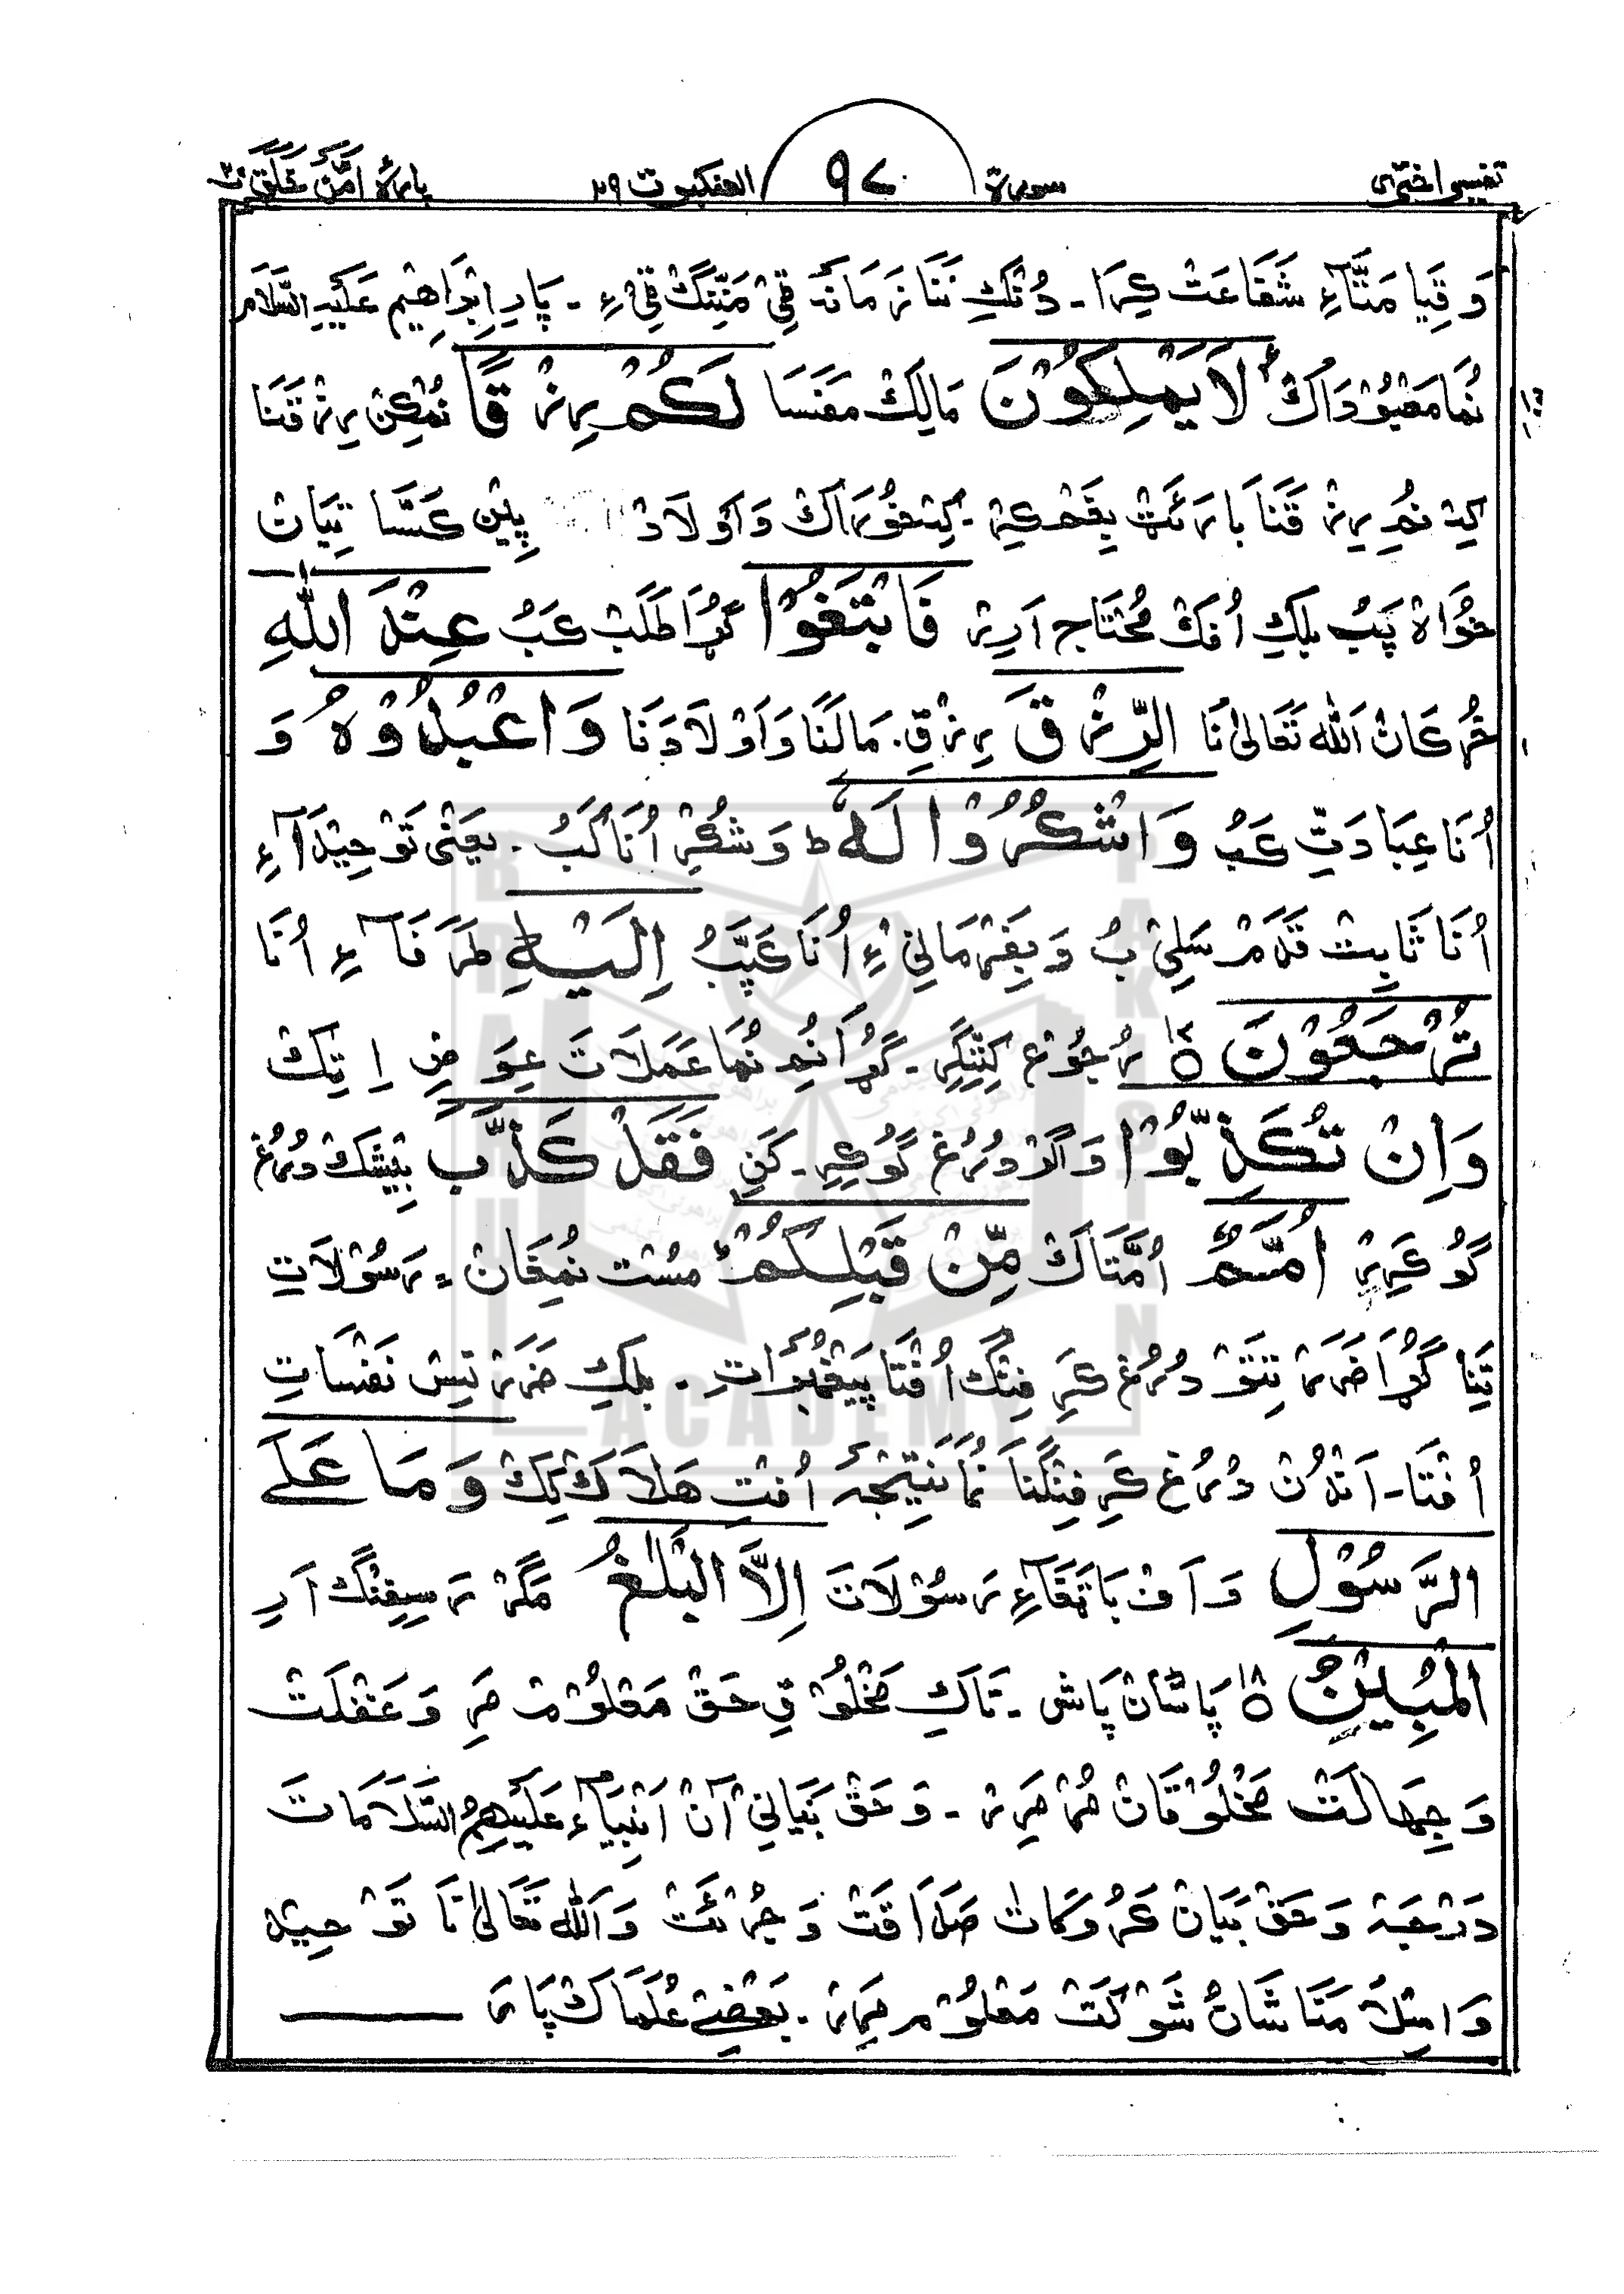 تفسیر اختری سورة ۹۷ العنکبوت ۲۹ پارهٔ امّن خلق ۲۰
وَ قِیا مَتَّآءِ شَفَاعَتْ کِرَا۔ دُنْکِ نَنَا زَمَانَہ قِیْ مَنِّنگْ قِیْ ءِ ۔ پَارِ اِبْرَاهِیْم عَلَیْہِ السَّلَام
نُمَا مَعْبُوْدَاکْ لَا یَمْلِکُوْنَ مَالِکْ مَفَسَا لَکُمْ رِزْقًا نُمْکِنْ رِزْقَنَا
کِہ نُمِ رِزْقَنَا بَارَئَتْ بِقَمْ کِرْ۔ کِہ خُوْرَاکْ وَ اَوْلَادْ پِیْن کَسَّا تِیَانْ
خُوَاہ پَبُ بلکِ اُفکْ مُحْتَاج اَرِرْ فَابْتَغُوْا گُڑَا طَلَبْ کَبُ عِنْدَ اللّٰهِ
خُرْکَانْ اَللّٰہ تَعَالیٰ نَا الرِّزْقَ رِزْقِ۔ مَالَنَا وَ اَوْلَادَنَا وَاعْبُدُوْهُ وَ
اُنَا عِبَادَتِ کَبُ وَاشْکُرُوْا لَهٗ ط وَ شُکْرِ اُنَا کَبُ ۔ یعْنی تَوْحِیْدَآءِ
اُنَا ثَابِتْ قَدَمْ سَلِیْ بُ وَ بِفَرْمَانِیْ ءِ اُنَا کَپَّبُ اِلَیْهِ طَرَفَآءِ اُنَا
تُرْجَعُوْنَ ۝۱۷ رُجُوْع کِنِّنْکِرِ ۔ گُڑَا نُمِ نُمَا عَمَلَاتَ عِوَضِ اِتِکْ
وَاِنْ تُکَذِّبُوْا وَ اَگَرْ دُرُغ گُوْکِرِ ۔ کَنِ فَقَدْ کَذَّبَ بِیْشَکْ دُرُغ
گُوْکَرِرْ اُمَمٌ اُمَّتَاکْ مِّنْ قَبْلِکُمْ ط مُسْت نُمِغَانْ ۔ رَسُوْلَاتِ
تِنَا گُڑَا ضَرَرْ تِتَوْ دُرُغ کَرِفِنْگ اُفْتَا پَیْغَمْبَرَاتِ ۔ بلکِ ضَرَرْ تِسْ نَفْسَاتِ
اُفْتَا۔ اَنْدُنْ دُرُغ کَرِفِنْگنَا نُمَا نَتِیْجَہ اُفْتِ هَلَاکْ کِکْ وَمَا عَلَے
الرَّسُوْلِ وَ اَفْ بَاتَقَآءِ رَسُوْلَاتَ اِلَّا الْبَلٰغُ مَگَرْ رَسِیْفِنْگ اَرِ
الْمُبِیْنُ ۝۱۸ پَاشَانْ پَاش ۔ تَاکِ مَخْلُوْقِ حَقْ مَعْلُوْمْ مَرِ وَ غَفْلَتْ
وَ جِهَالَتْ مَخْلُوْقَانْ مُرْ مَرِرْ ۔ وَ حَقْ بَیَانِیْ آنْ اَنْبِیَآءِ عَلَیْهِمُ السَّلَامَاتَ
دَرْجَہ وَ حَقْ بَیَانْ کَرُوْکَاتْ صَدَاقَتْ وَ جُرْئَتْ وَ اَللّٰہ تَعَالیٰ نَا تَوْحِیْد
وَ اِسْلَامَنَا شَانُ شَوْکَتْ مَعْلُوْم مَرِرْ ۔ بَعْضِے عُلَمَاکْ پَارَ